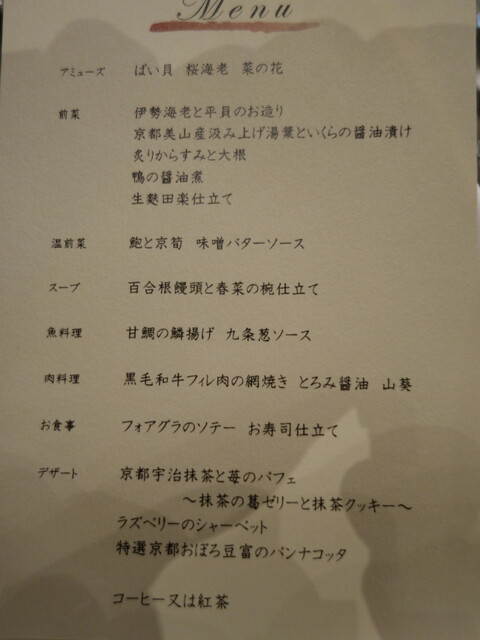 Menu
アミューズ ばい貝 桜海老 菜の花
前菜 伊勢海老と平貝のお造り
京都美山産汲み上げ湯葉といくらの醤油漬け
炙りからすみと大根
鴨の醤油煮
生麩田楽仕立て
温前菜 鮑と京筍 味噌バターソース
スープ 百合根饅頭と春菜の椀仕立て
魚料理 甘鯛の鱗揚げ 九条葱ソース
肉料理 黒毛和牛フィレ肉の網焼き とろみ醤油 山葵
お食事 フォアグラのソテー お寿司仕立て
デザート 京都宇治抹茶と苺のパフェ
～抹茶の葛ゼリーと抹茶クッキー～
ラズベリーのシャーベット
特選京都おぼろ豆富のパンナコッタ
コーヒー又は紅茶